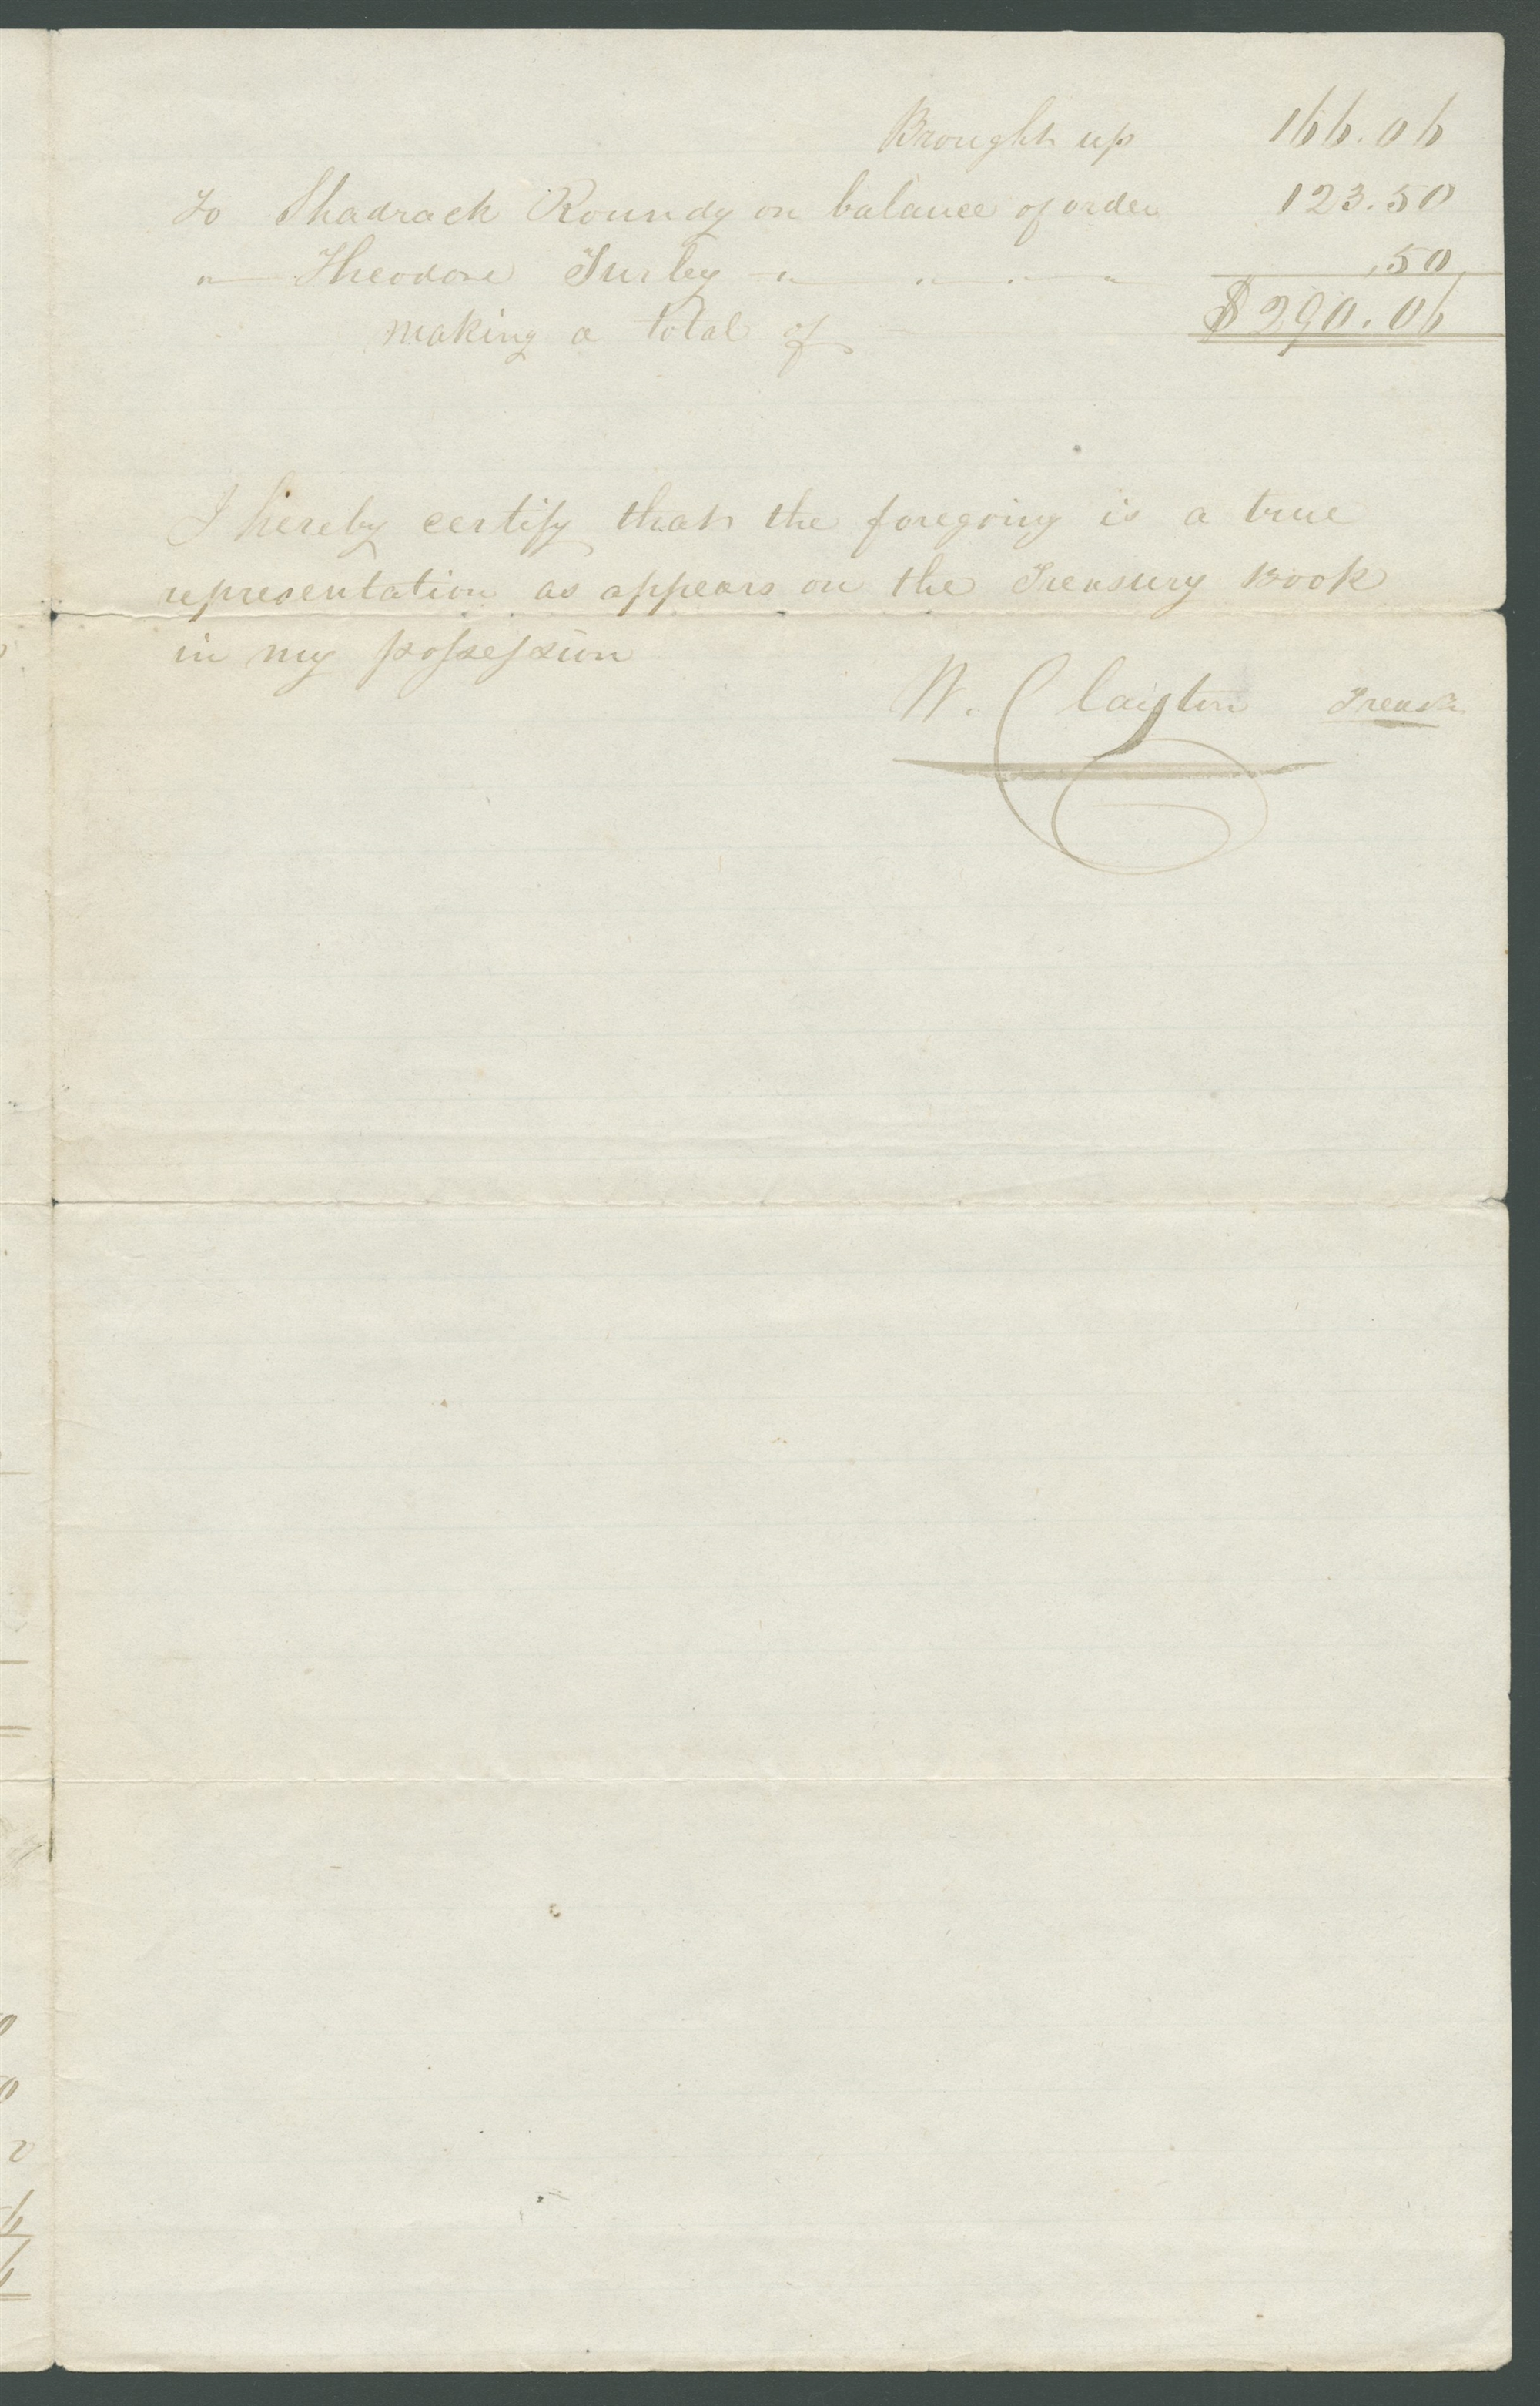 Brought up 166.06
To Shadrack Roundy on balance of order 123.50
" Theodore Turley " " " " .50
making a total of $290.06
I hereby certify that the foregoing is a true
representation as appears on the Treasury Book
in my possession
W. Clayton Treasr.